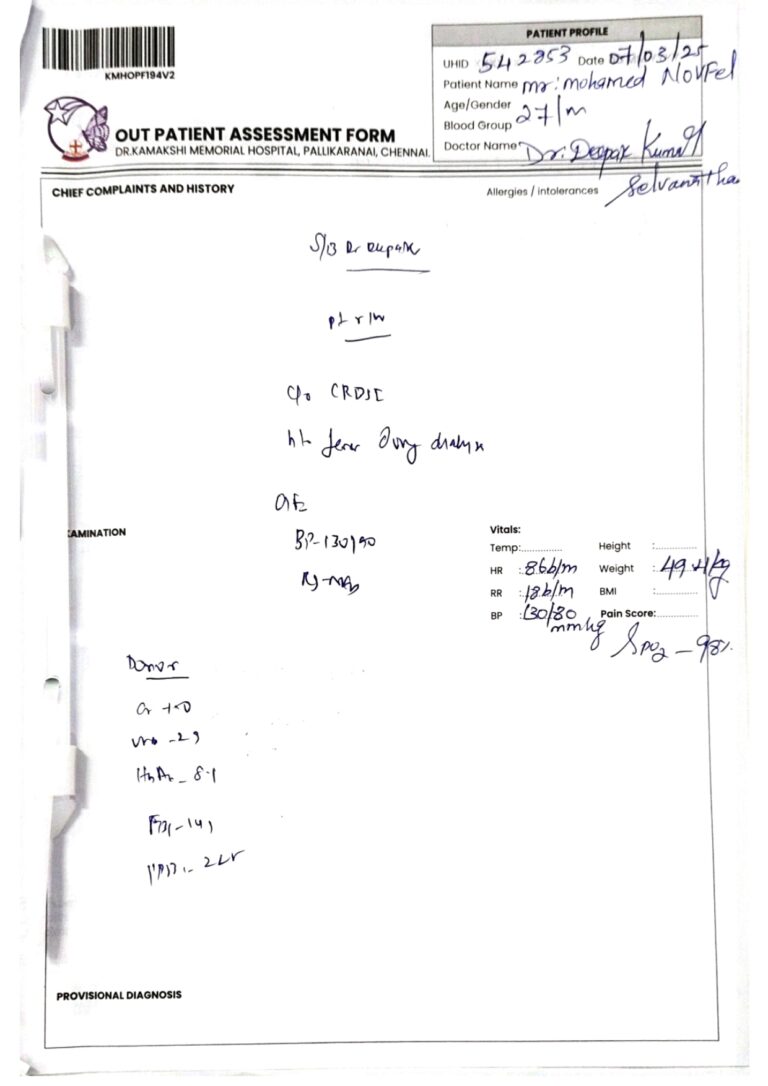 KMHOPF194V2
OUT PATIENT ASSESSMENT FORM
DR.KAMAKSHI MEMORIAL HOSPITAL, PALLIKARANAI, CHENNAI.
PATIENT PROFILE
UHID 542853 Date 07/03/25
Patient Name mr: mohamed NOVFel
Age/Gender 27/m
Blood Group
Doctor Name Dr. Deepak Kumar
CHIEF COMPLAINTS AND HISTORY
Allergies / intolerances
S/B Dr Deepak
pt r/w
c/o
h/o fever during dialysis
O/E
AMINATION
BP-130/90
Vitals:
Temp:............ Height :............
HR : 86b/m Weight : 49.4kg
RR : 18b/m BMI :............
BP : 130/80 mmhg Pain Score:............
SPO2 - 98%
Donor
HbA1c - 8.1
PROVISIONAL DIAGNOSIS